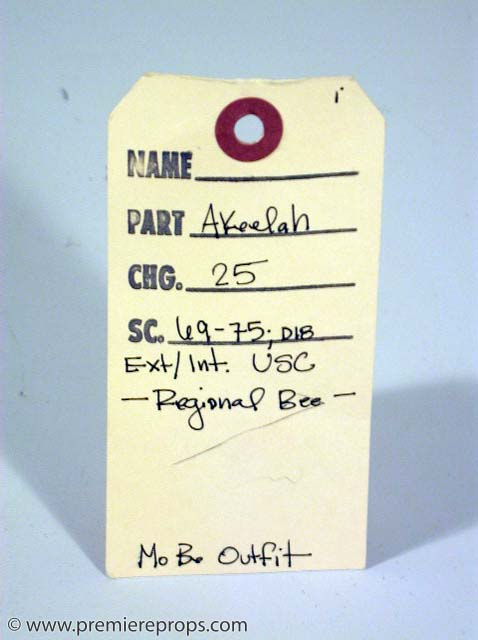 NAME
PART Akeelah
CHG. 25
SC. 69-75; D18
Ext/Int. USC
- Regional Bee -
Mo Be Outfit
© www.premiereprops.com